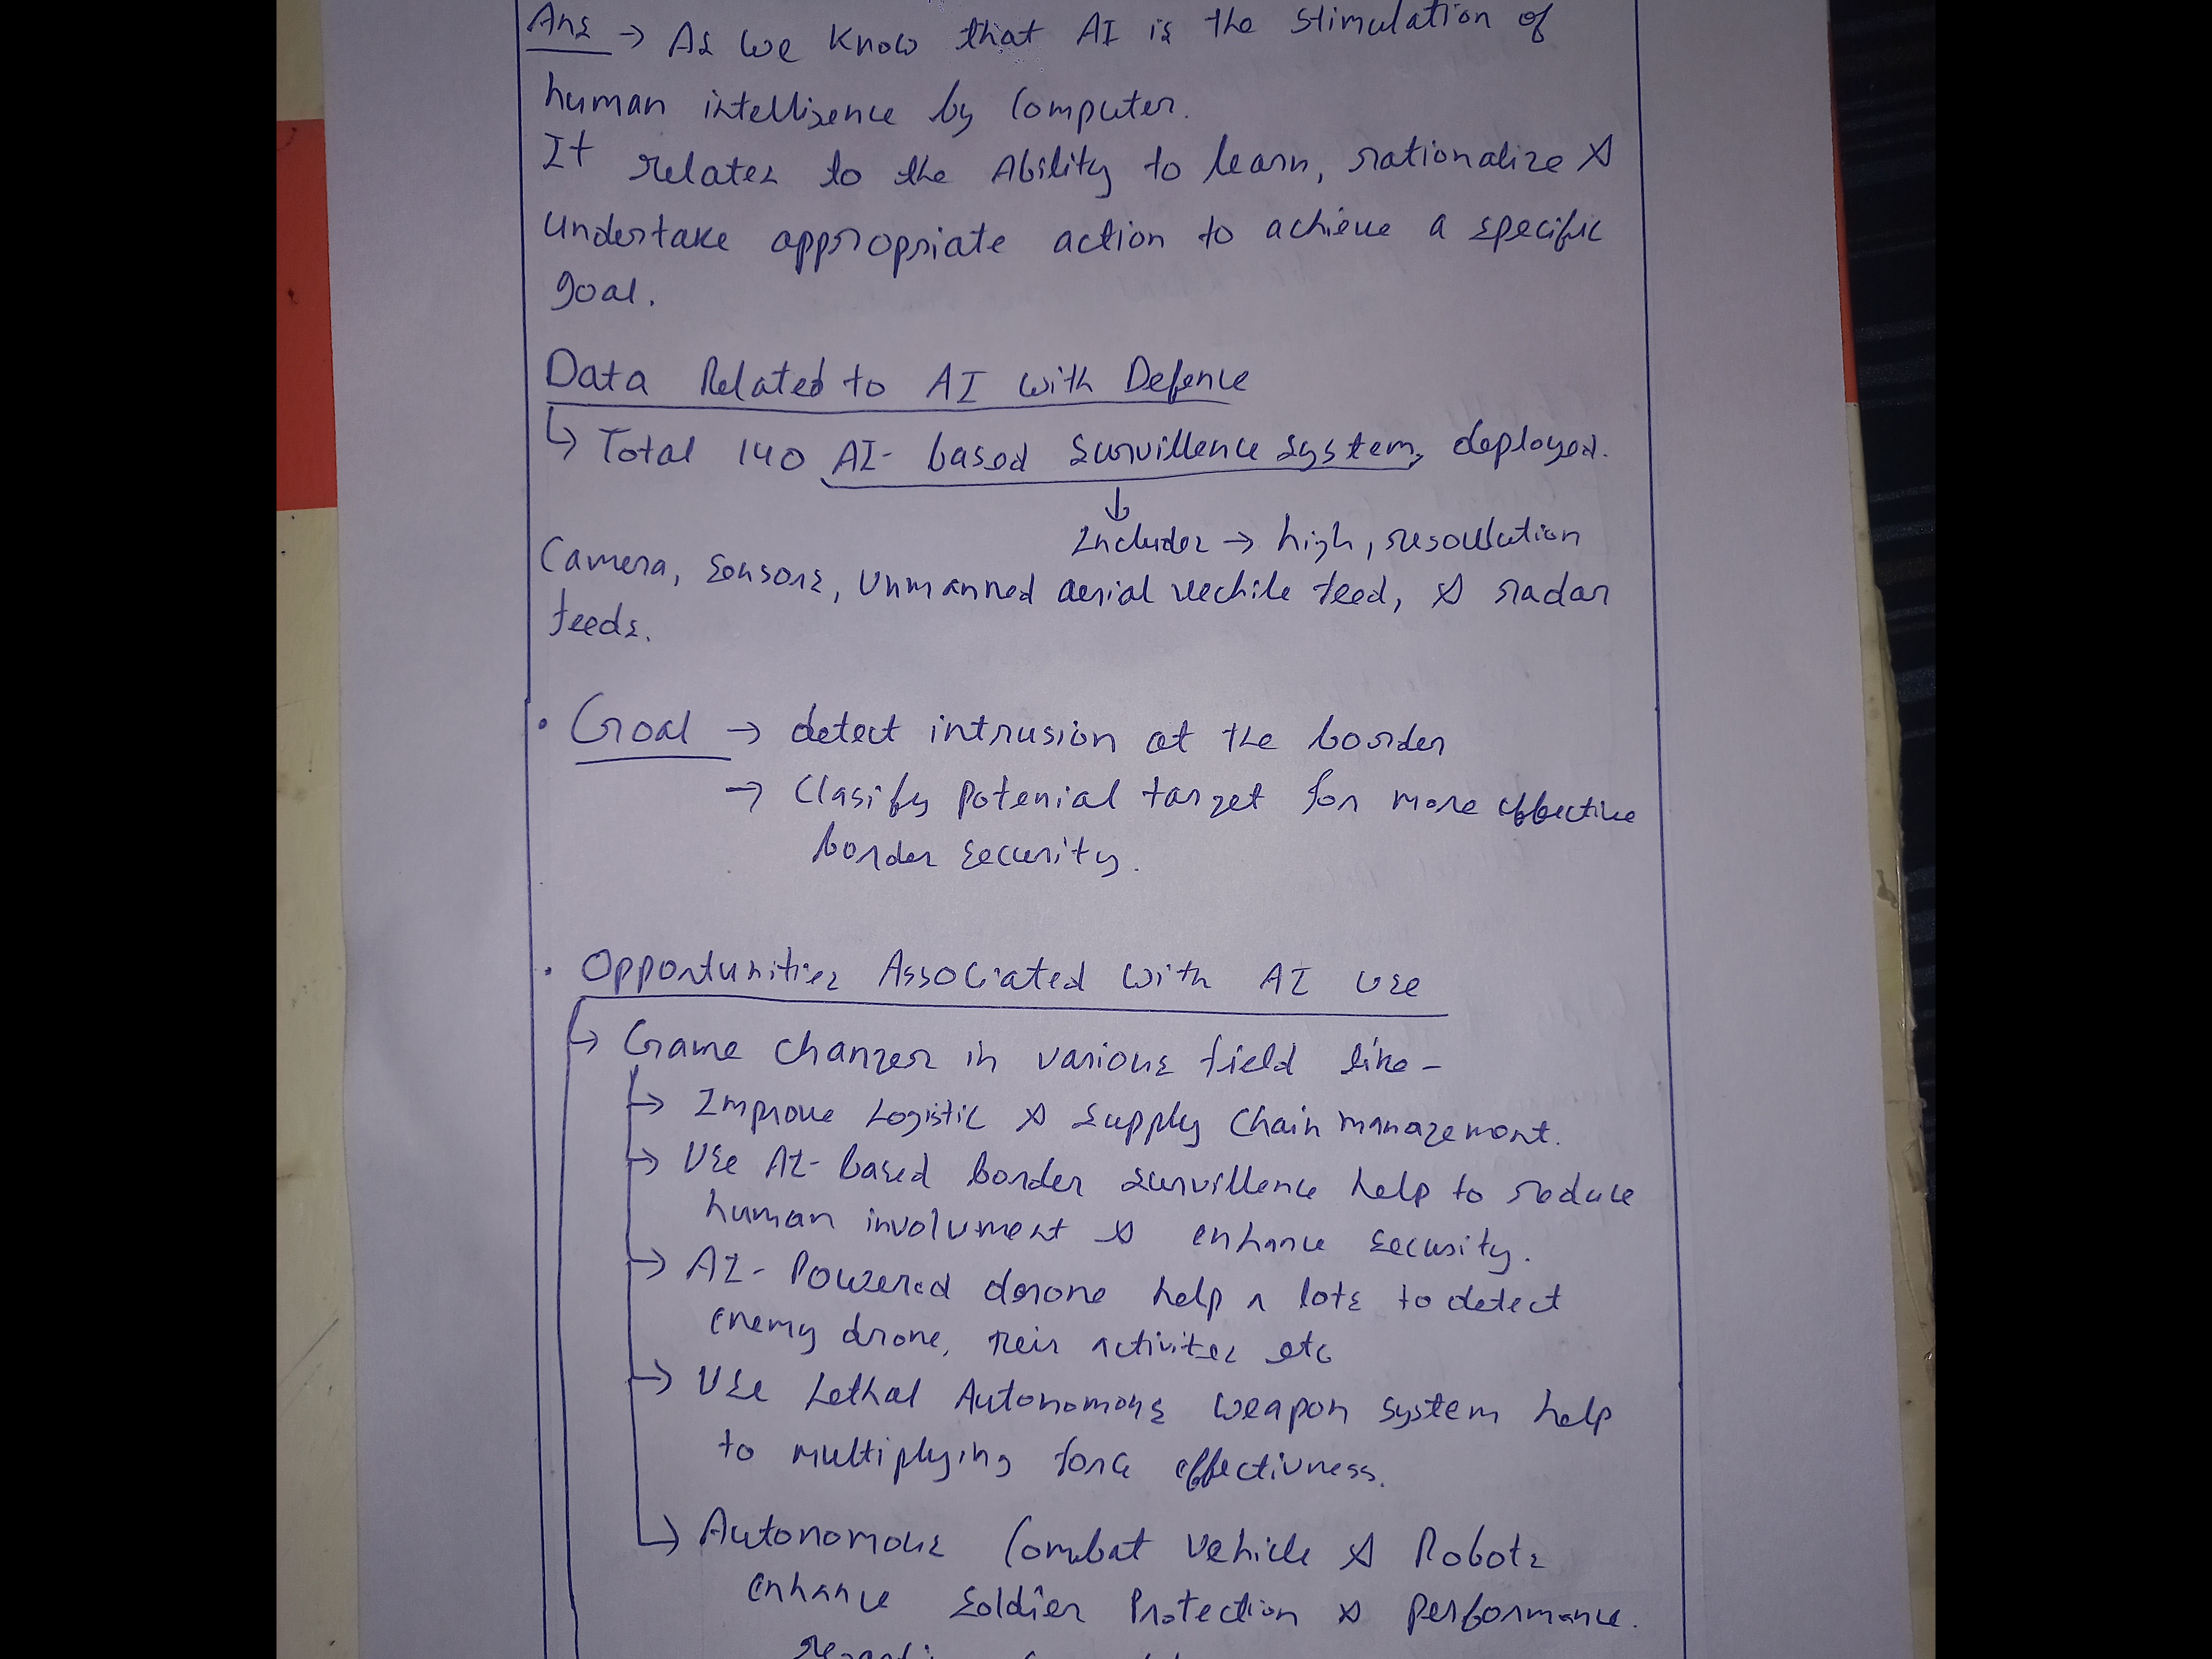 Ans → As we know that AI is the stimulation of
human intelligence by Computer.
It relates to the Ability to learn, rationalize &
undertake appropriate action to achieve a specific
goal.
Data Related to AI with Defence
↳ Total 140 AI- based survillence system, deployed.
↓
Includes → high, resoulution
Camera, sensors, unmanned aerial vechile feed, & radar
feeds.
• Goal → detect intrusion at the border
→ Clasify potenial target for more effective
border security.
• Opportunities Associated with AI use
↳ Game changer in various field like -
→ Improve Logistic & supply chain management.
→ Use AI- based border survillence help to reduce
human involvment & enhance security.
→ AI- Powered drone help a lots to detect
enemy drone, their activites etc
→ Use Lethal Autonomous weapon system help
to multiplying force effectivness.
↳ Autonomous Combat vehicle & Robots
enhance soldier Protection & performance.